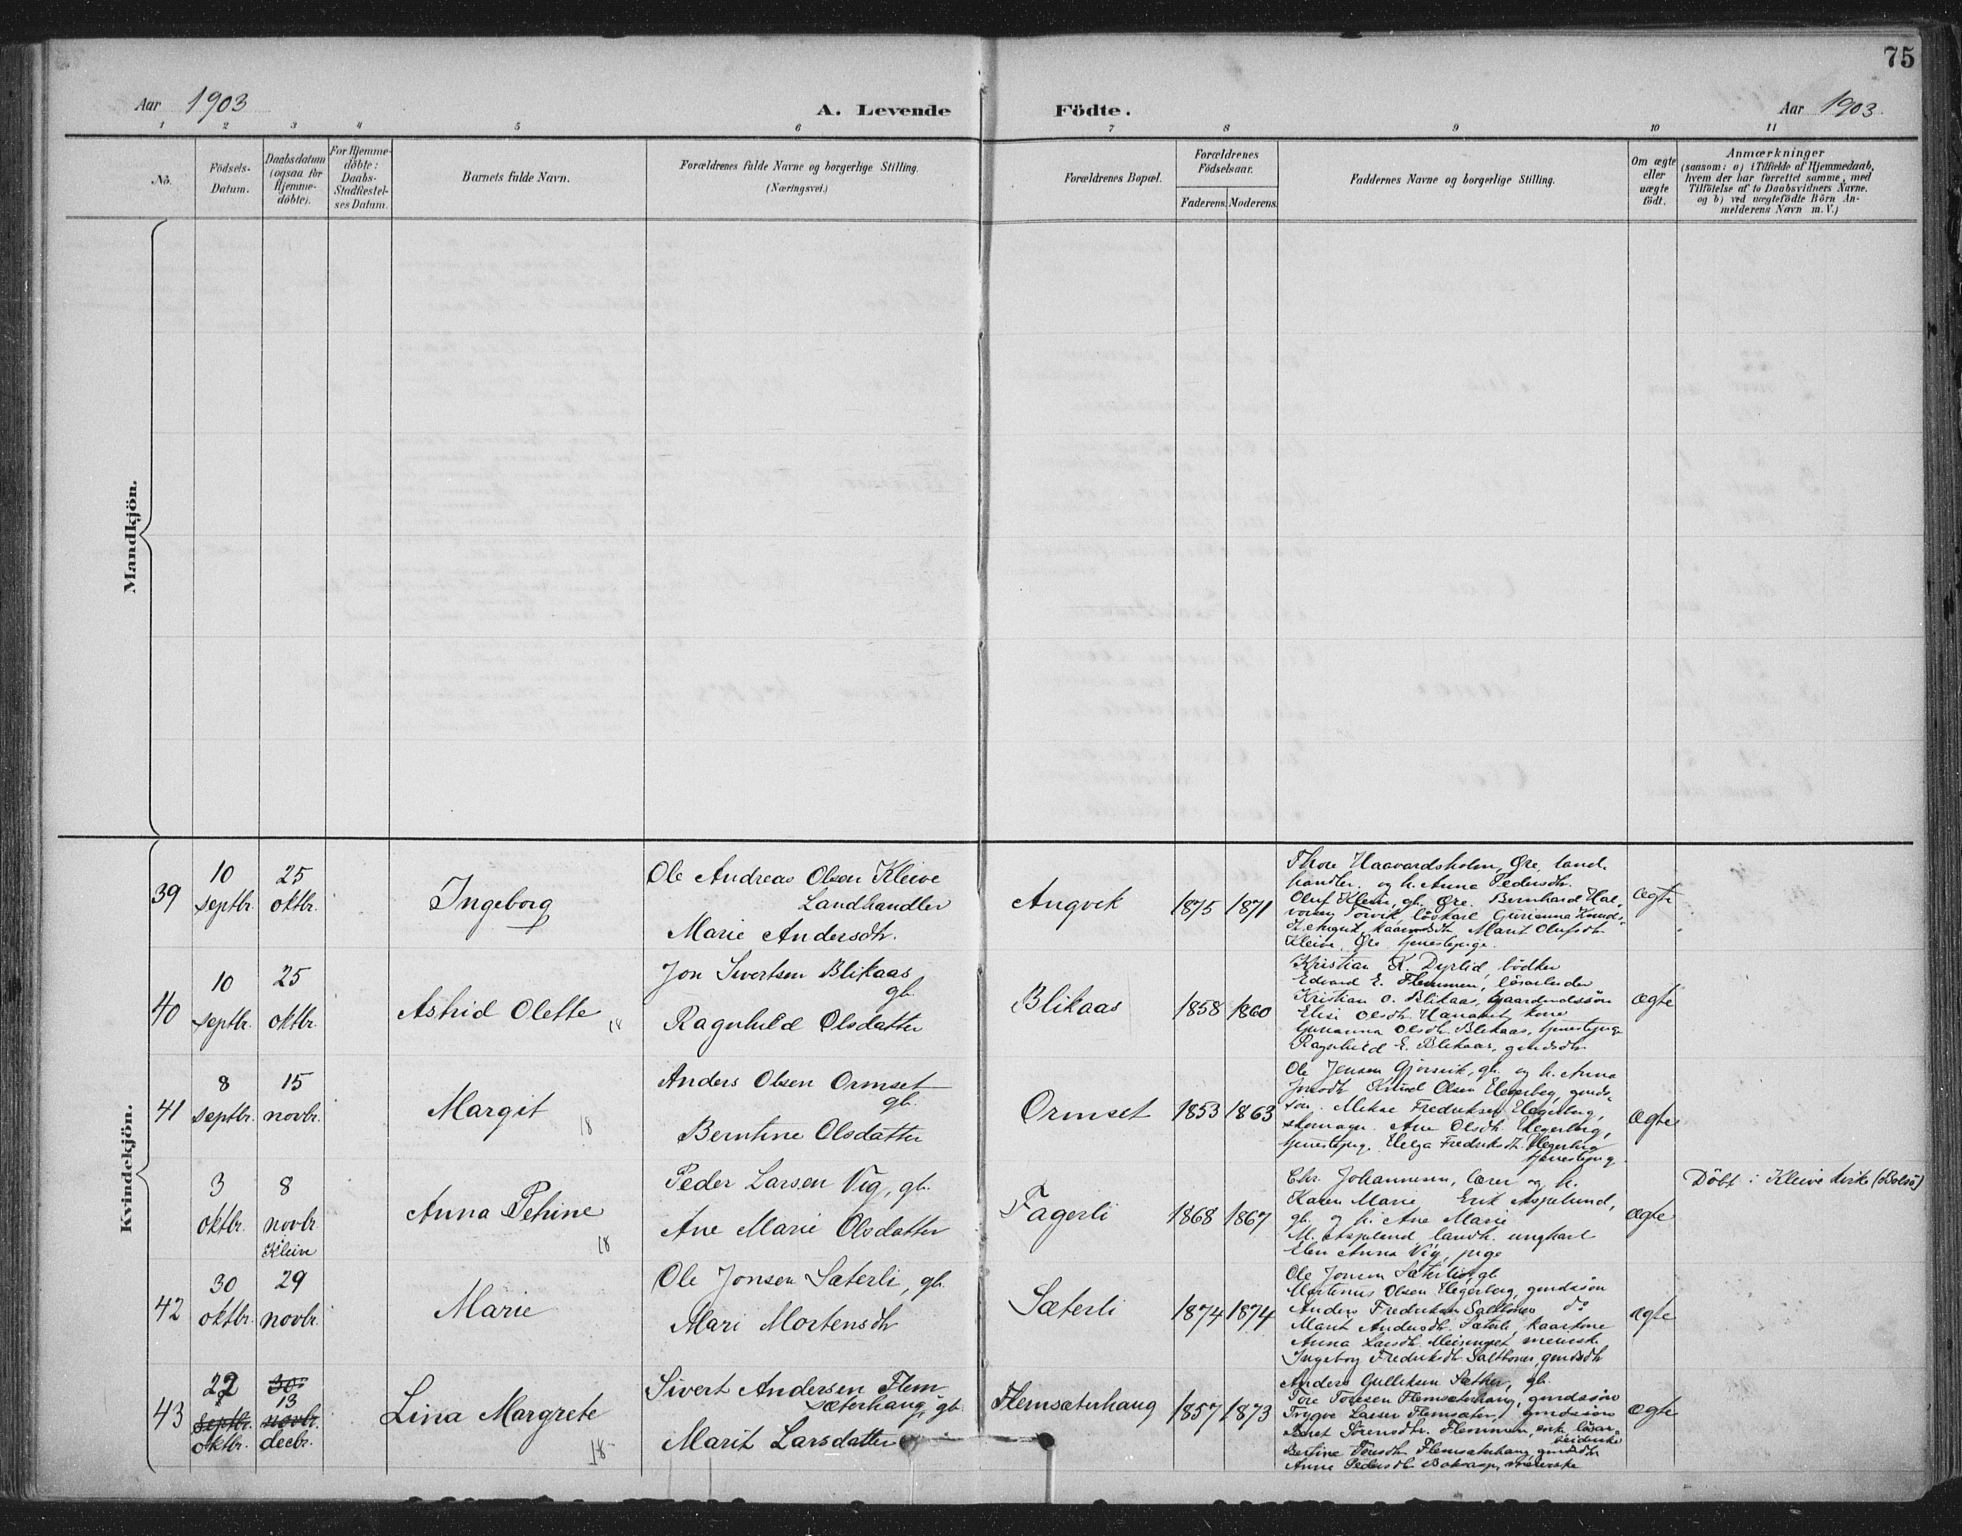 75
Aar 1903
A. Levende Födte.
Aar 1903.
1 2 3 4 5 6 7 8 9 10 11
No.
Födsels-
Datum.
Daabsdatum
(ogsaa for
Hjemme-
döbte).
For Hjemme-
döbte:
Daabs-
Stadfæstel-
ses Datum.
Barnets fulde Navn.
Forældrenes fulde Navne og borgerlige Stilling.
(Næringsvei.)
Forældrenes Bopæl.
Forældrenes
Födselsaar.
Faderens. Moderens.
Faddernes Navne og borgerlige Stilling.
Om ægte
eller
uægte
födt.
Anmærkninger
(saasom: a) i Tilfælde af Hjemmedaab,
hvem der har forrettet samme, med
Tilföielse af to Daabsvidners Navne.
og b) ved uægtefödte Börn An-
melderens Navn m. V.)
Mandkjön.
Kvindekjön.
39
10
septbr.
25
oktbr.
Ingeborg
Ole Andreas Olsen Kleive
Landhandler
Marie Andersdtr.
Angvik
1875 1871
Thore Haavardsholm, Øre, land-
handler, og h. Anna Pedersdtr.
Oluf Kleive, gb. Øre. Bernhard Hal-
Marit Olufsdtr.
Kleive, Øre, tjenestepige.
ægte
40
10
septbr.
25
oktbr.
Astrid Olette
18
Jon Sivertsen Blikaas
gb.
Ragnhild Olsdatter
Blikaas
1858 1860
Kristian K. Dyrlid, bödker
Edvard E. Flemmen, lösarbeider
Kristian O. Blikaas, gaardmandssön
Elisi Olsdtr. kone
Gurianna Olsdtr. Blikaas, tjenestepige
Ragnhild E. Blikaas, gmdsdtr.
ægte
41
8
septbr.
15
novbr.
Margit
18
Anders Olsen Ormset
gb.
Berntine Olsdatter
Ormset
1853 1863
Ole Jensen Gjörsvik, gb. og h. Anna
Jonsdtr. Knud Olsen Hegerberg, gmds-
sön. Mikae Fredriksen Hegerberg,
skomager. Ane Olsdtr. Hegerberg,
tjenestepige. Helga Fredriksdtr. Hegerberg
tjenestepig.
ægte
3
oktbr.
8
novbr.
Kleive
Anna Petrine
18
Peder Larsen Vig, gb.
Ane Marie Olsdatter
Fagerli
1868 1867
Chr. Johannesen, lærer og h.
Karen Marie. Erik Aspelund,
gb. og h. Ane Marie
M. Aspelund landh. ungkarl
Elen Anna Vig, pige
ægte
Döbt i Kleive kirke (Bolsö)
42
30
oktbr.
29
novbr.
Marie
Ole Jonsen Sæterli, gb.
Mari Mortensdtr
Sæterli
1874 1874
Ole Jonsen Sæterli, gb
Martinus Olsen Hegerberg, gmdssön
Anders Fredriksen Saltbones do
Marit Andersdtr. Sæterli, kaarkone
Anna Larsdtr. Meisingset, meierske
Ingeborg Fredriksdtr. Saltbones, gmdsdtr
ægte
43
22
septbr.
oktbr.
30
13
novbr.
decbr.
Lina Margrete
18
Sivert Andersen Flem-
sæterhaug, gb.
Marit Larsdatter
Flemsæterhaug
1857 1873
Anders Gulliksen Sæther, gb.
Tore Toresen Flemsæterhaug, gmdssön
Trygve Larsen Flemsæter, gmdssön
Beret Sörensdtr. Flemmen, enke, lösar-
beiderske
Bertine Toresdtr. Flemsæterhaug, gmdsdtr
Anne Pedersdtr. meierske
ægte